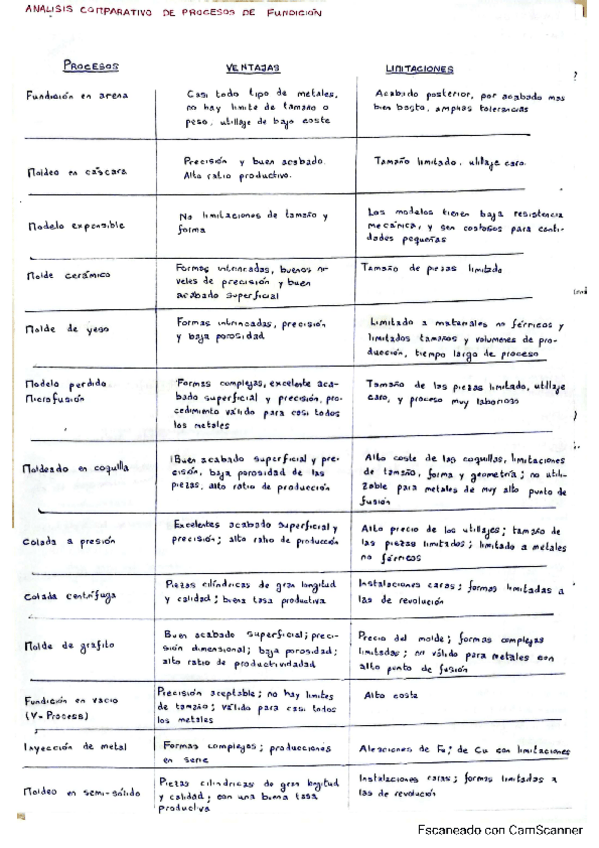 ANALISIS COMPARATIVO DE PROCESOS DE FUNDICIÓN
PROCESOS
VENTAJAS
LIMITACIONES
Fundición en arena
Casi todo tipo de metales,
no hay limite de tamaño o
peso, utillaje de bajo coste
Acabado posterior, por acabado mas
bien basto, amplias tolerancias
Moldeo en cáscara
Precisión y buen acabado.
Alto ratio productivo.
Tamaño limitado, utillaje caro.
Modelo expansible
No limitaciones de tamaño y
forma
Los modelos tienen baja resistencia
mecánica, y son costosos para canti-
dades pequeñas
Molde cerámico
Formas intrincadas, buenos ni-
veles de precisión y buen
acabado superficial
Tamaño de piezas limitado
Molde de yeso
Formas intrincadas, precisión
y baja porosidad
Limitado a materiales no férricos y
limitados tamaños y volumenes de pro-
ducción, tiempo largo de proceso
Modelo perdido.
Microfusión
Formas complejas, excelente aca-
bado superficial y precisión, pro-
cedimiento válido para casi todos
los metales
Tamaño de las piezas limitado, utillaje
caro, y proceso muy laborioso
Moldeado en coquilla
Buen acabado superficial y pre-
cisión, baja porosidad de las
piezas, alto ratio de producción
Alto coste de las coquillas, limitaciones
de tamaño, forma y geometría; no utili-
zable para metales de muy alto punto de
fusión
Colada a presión
Excelentes acabado superficial y
precisión; alto ratio de producción
Alto precio de los utillajes; tamaño de
las piezas limitados; limitado a metales
no férricos
Colada centrífuga
Piezas cilíndricas de gran longitud
y calidad; buena tasa productiva
Instalaciones caras; formas limitadas a
las de revolución
Molde de grafito
Buen acabado superficial; preci-
sión dimensional; baja porosidad;
alto ratio de productividadad
Precio del molde; formas complejas
limitadas; no válido para metales con
alto punto de fusión
Fundición en vacio
(V-Process)
Precisión aceptable; no hay limites
de tamaño; válido para casi todos
los metales
Alto coste
Inyección de metal
Formas complejas; producciones
en serie
Aleaciones de Fe; de Cu con limitaciones
Moldeo en semi-sólido
Piezas cilíndricas de gran longitud
y calidad; con una buena tasa
productiva
Instalaciones caras; formas limitadas a
las de revolución
Escaneado con CamScanner